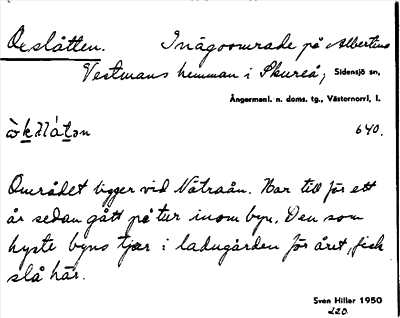 Oxslåtten. Inägoområde på Albertina
Vestmans hemman i Skureå, Sidensjö sn,
Ångermanl. n. doms. tg., Västernorrl, l.
640.
Området ligger vid Nätraån. Har till för ett
år sedan gått på tur inom byn. Den som
hyste byns tjur i ladugården för året, fick
slå här.
Sven Hiller 1950
220.